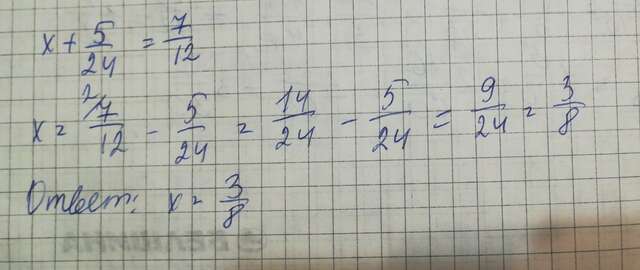 x + 5/24 = 7/12
x = ²7/12 - 5/24 = 14/24 - 5/24 = 9/24 = 3/8
Ответ: x = 3/8